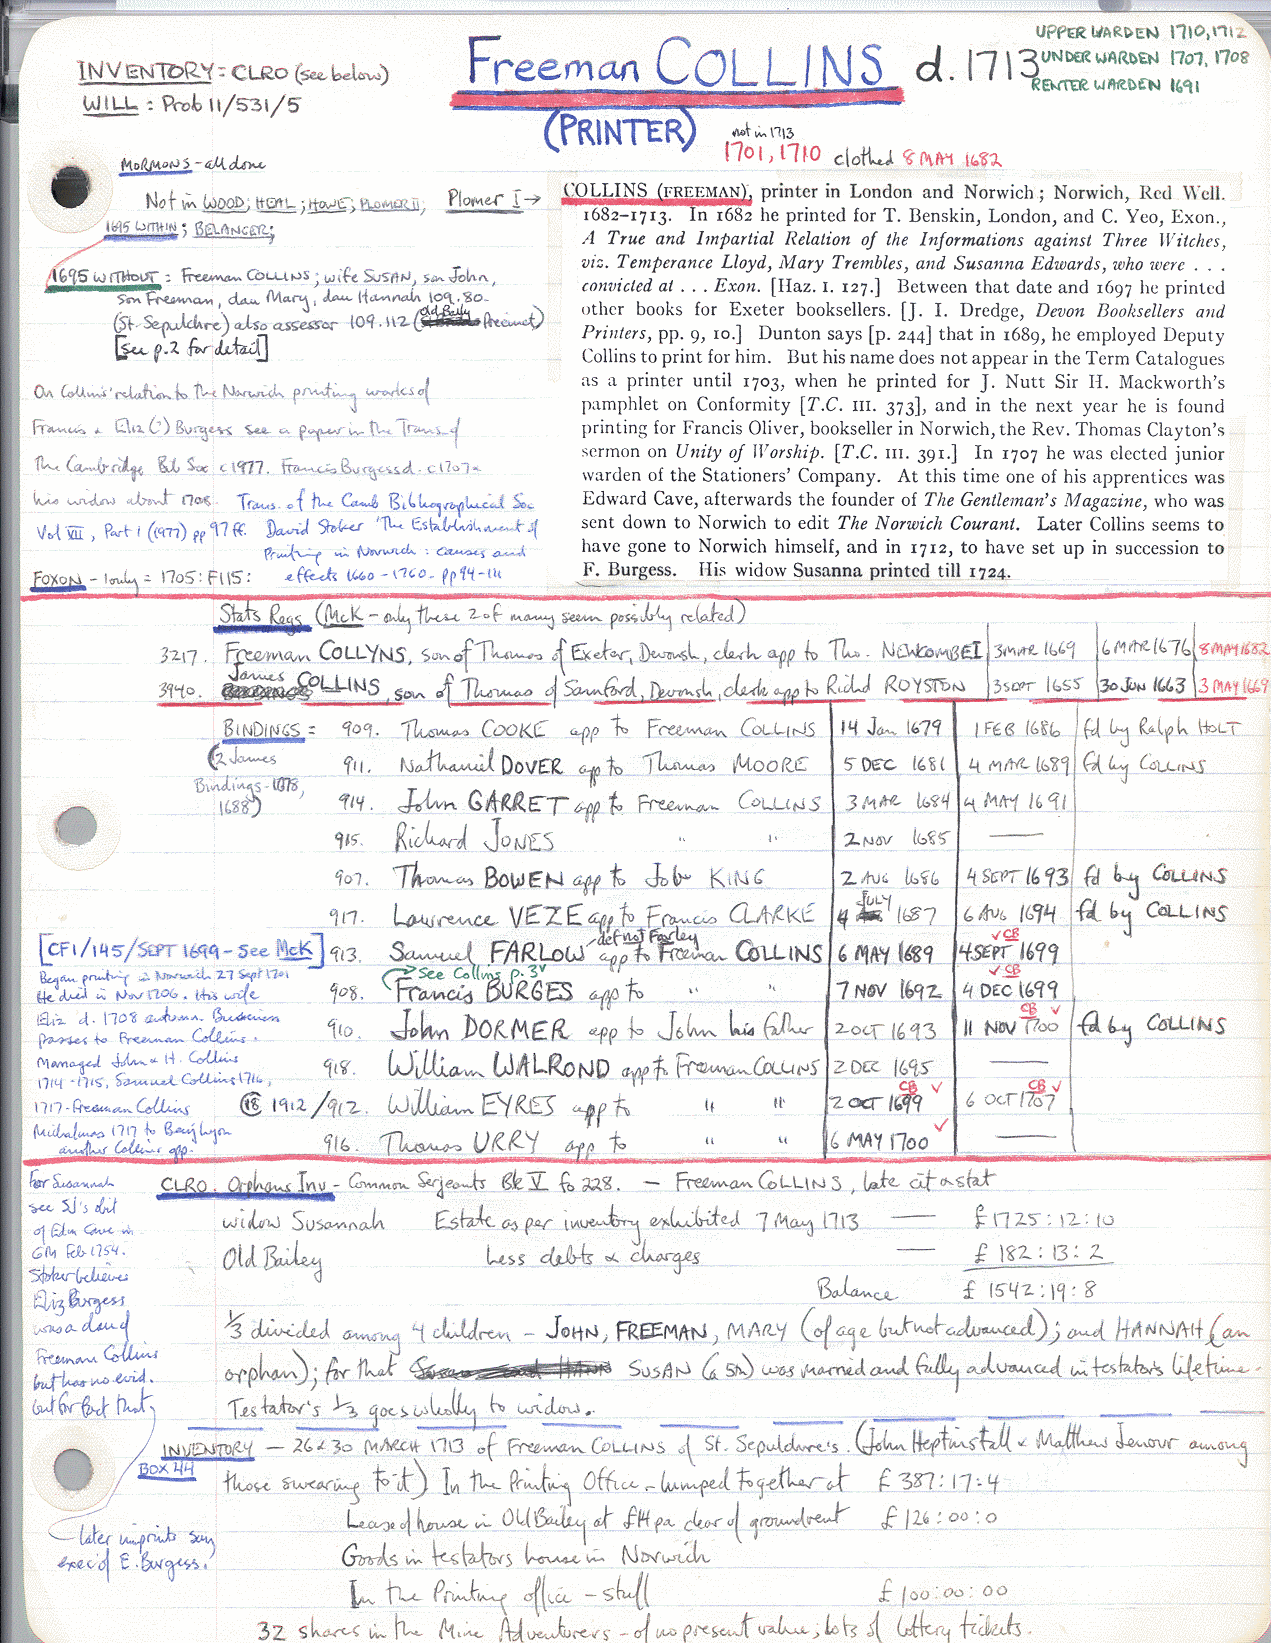 UPPER WARDEN 1710, 1712
INVENTORY = CLRO (see below)
Freeman COLLINS d. 1713
UNDER WARDEN 1707, 1708
RENTER WARDEN 1691
WILL : Prob 11/531/5
(PRINTER)
not in 1713
1701, 1710 clothed 8 MAY 1682
MORMONS - all done
Not in WOOD; HEAL; HOWE; PLOMER II; Plomer I →
1695 WITHIN; BELANGER;
1695 WITHOUT : Freeman COLLINS; wife SUSAN, son John,
son Freeman, dau Mary, dau Hannah 109.80.
(St. Sepulchre) also assessor 109.112 (Old Bailey Precinct)
[see p.2 for detail]
On Collins' relation to the Norwich printing works of
Francis & Eliz (?) Burgess see a paper in the Trans. of
the Cambridge Bib Soc c1977. Francis Burgess d. c1707 &
his widow about 1708. Trans. of the Camb Bibliographical Soc
Vol VII, Part 1 (1977) pp 97 ff. David Stoker 'The Establishment of
Printing in Norwich : causes and
FOXON - 1 only = 1705 : F115 : effects 1660-1760. pp 94-111
COLLINS (FREEMAN), printer in London and Norwich; Norwich, Red Well.
1682–1713. In 1682 he printed for T. Benskin, London, and C. Yeo, Exon.,
A True and Impartial Relation of the Informations against Three Witches,
viz. Temperance Lloyd, Mary Trembles, and Susanna Edwards, who were . . .
convicted at . . . Exon. [Haz. I. 127.] Between that date and 1697 he printed
other books for Exeter booksellers. [J. I. Dredge, Devon Booksellers and
Printers, pp. 9, 10.] Dunton says [p. 244] that in 1689, he employed Deputy
Collins to print for him. But his name does not appear in the Term Catalogues
as a printer until 1703, when he printed for J. Nutt Sir H. Mackworth's
pamphlet on Conformity [T.C. III. 373], and in the next year he is found
printing for Francis Oliver, bookseller in Norwich, the Rev. Thomas Clayton's
sermon on Unity of Worship. [T.C. III. 391.] In 1707 he was elected junior
warden of the Stationers' Company. At this time one of his apprentices was
Edward Cave, afterwards the founder of The Gentleman's Magazine, who was
sent down to Norwich to edit The Norwich Courant. Later Collins seems to
have gone to Norwich himself, and in 1712, to have set up in succession to
F. Burgess. His widow Susanna printed till 1724.
Stats Regs (McK - only these 2 of many seem possibly related)
3217. Freeman COLLYNS, son of Thomas of Exeter, Devonsh, clerk app to Tho. NEWCOMBE I 3 MAR 1669 6 MAR 1676 8 MAY 1682
3940. James COLLINS, son of Thomas of Samford, Devonsh, clerk app to Richd ROYSTON 3 SEPT 1655 30 JUN 1663 3 MAY 1669
BINDINGS = 909. Thomas COOKE app to Freeman COLLINS 14 Jan 1679 1 FEB 1686 fd by Ralph HOLT
(2 James
911. Nathaniel DOVER app to Thomas MOORE 5 DEC 1681 4 MAR 1689 fd by COLLINS
Bindings - 1678,
1688)
914. John GARRET app to Freeman COLLINS 3 MAR 1684 4 MAY 1691
915. Richard JONES " " 2 NOV 1685 —
907. Thomas BOWEN app to Job KING 2 AUG 1686 4 SEPT 1693 fd by COLLINS
917. Lawrence VEZE app to Francis CLARKE 4 JULY 1687 6 AUG 1694 fd by COLLINS
def not Farley
[CF1/145/SEPT 1699 - See McK] 913. Samuel FARLOW app to Freeman COLLINS 6 MAY 1689 4 SEPT 1699 ✓ CB
See Collins p. 3 ✓
908. Francis BURGES app to " " 7 NOV 1692 4 DEC 1699 ✓ CB
910. John DORMER app to John his father 2 OCT 1693 11 NOV 1700 CB ✓ fd by COLLINS
918. William WALROND app to Freeman COLLINS 2 DEC 1695 —
1912/912. William EYRES app to " " 2 OCT 1699 CB ✓ 6 OCT 1707 CB ✓
916. Thomas URRY app to " " 6 MAY 1700 ✓ —
Began printing in Norwich 27 Sept 1701
He died in Nov 1706. His wife
Eliz d. 1708 autumn. Business
passes to Freeman Collins.
Managed John & H. Collins
1714-1715, Samuel Collins 1716,
1717 - Freeman Collins
Michalmas 1717 to Benj Lyon
another Collins app.
CLRO. Orphans Inv - Common Serjeants Bk V fo 228. — Freeman COLLINS, late cit & stat
widow Susannah Estate as per inventory exhibited 7 May 1713 — £1725:12:10
Old Bailey Less debts & charges — £ 182:13:2
Balance £ 1542:19:8
1/3 divided among 4 children - JOHN, FREEMAN, MARY (of age but not advanced); and HANNAH (an
orphan); for that SUSAN (a 5th) was married and fully advanced in testator's lifetime.
Testator's 1/3 goes wholly to widow.
For Susannah
see SJ's obit
of Edm Cave in
GM Feb 1754.
Stoker believes
Eliz Burgess
was a dau of
Freeman Collins
but has no evid.
but for fact that
later imprints say
exec of E. Burgess.
INVENTORY — 26 & 30 MARCH 1713 of Freeman COLLINS of St. Sepulchre's. (John Heptinstall & Matthew Jenour among
BOX 44
those swearing to it) In the Printing Office - lumped together at £ 387:17:4
Lease of house in Old Bailey at £14 pa clear of groundrent £ 126:00:0
Goods in testators house in Norwich
In the Printing office - stuff £100:00:00
32 shares in the Mine Adventurers - of no present value; lots of lottery tickets.